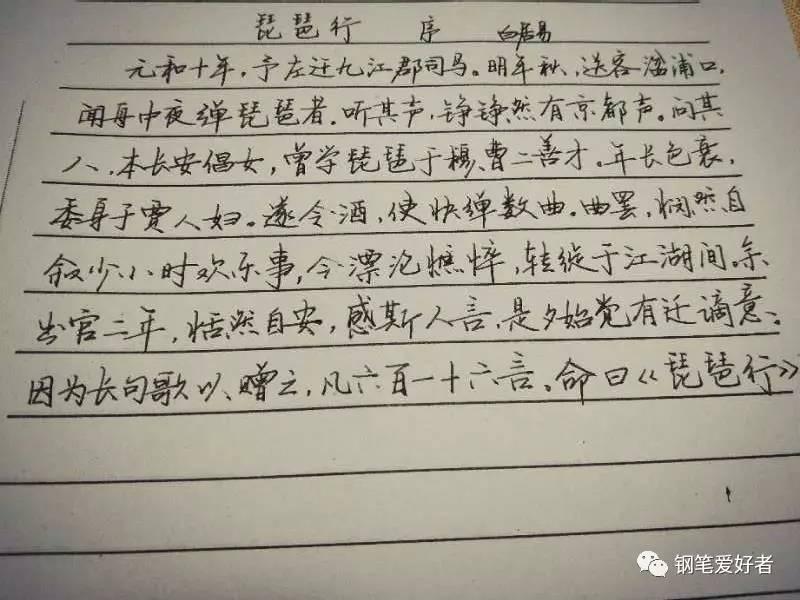 琵琶行 序 白居易
元和十年，予左迁九江郡司马。明年秋，送客湓浦口，
闻舟中夜弹琵琶者。听其声，铮铮然有京都声。问其
人，本长安倡女，曾学琵琶于穆、曹二善才。年长色衰，
委身于贾人妇。遂令酒，使快弹数曲。曲罢，悯然自
叙少小时欢乐事，今漂沦憔悴，转徙于江湖间。余
出官二年，恬然自安，感斯人言，是夕始觉有迁谪意。
因为长句歌以赠之，凡六百一十六言。命曰《琵琶行》
钢笔爱好者